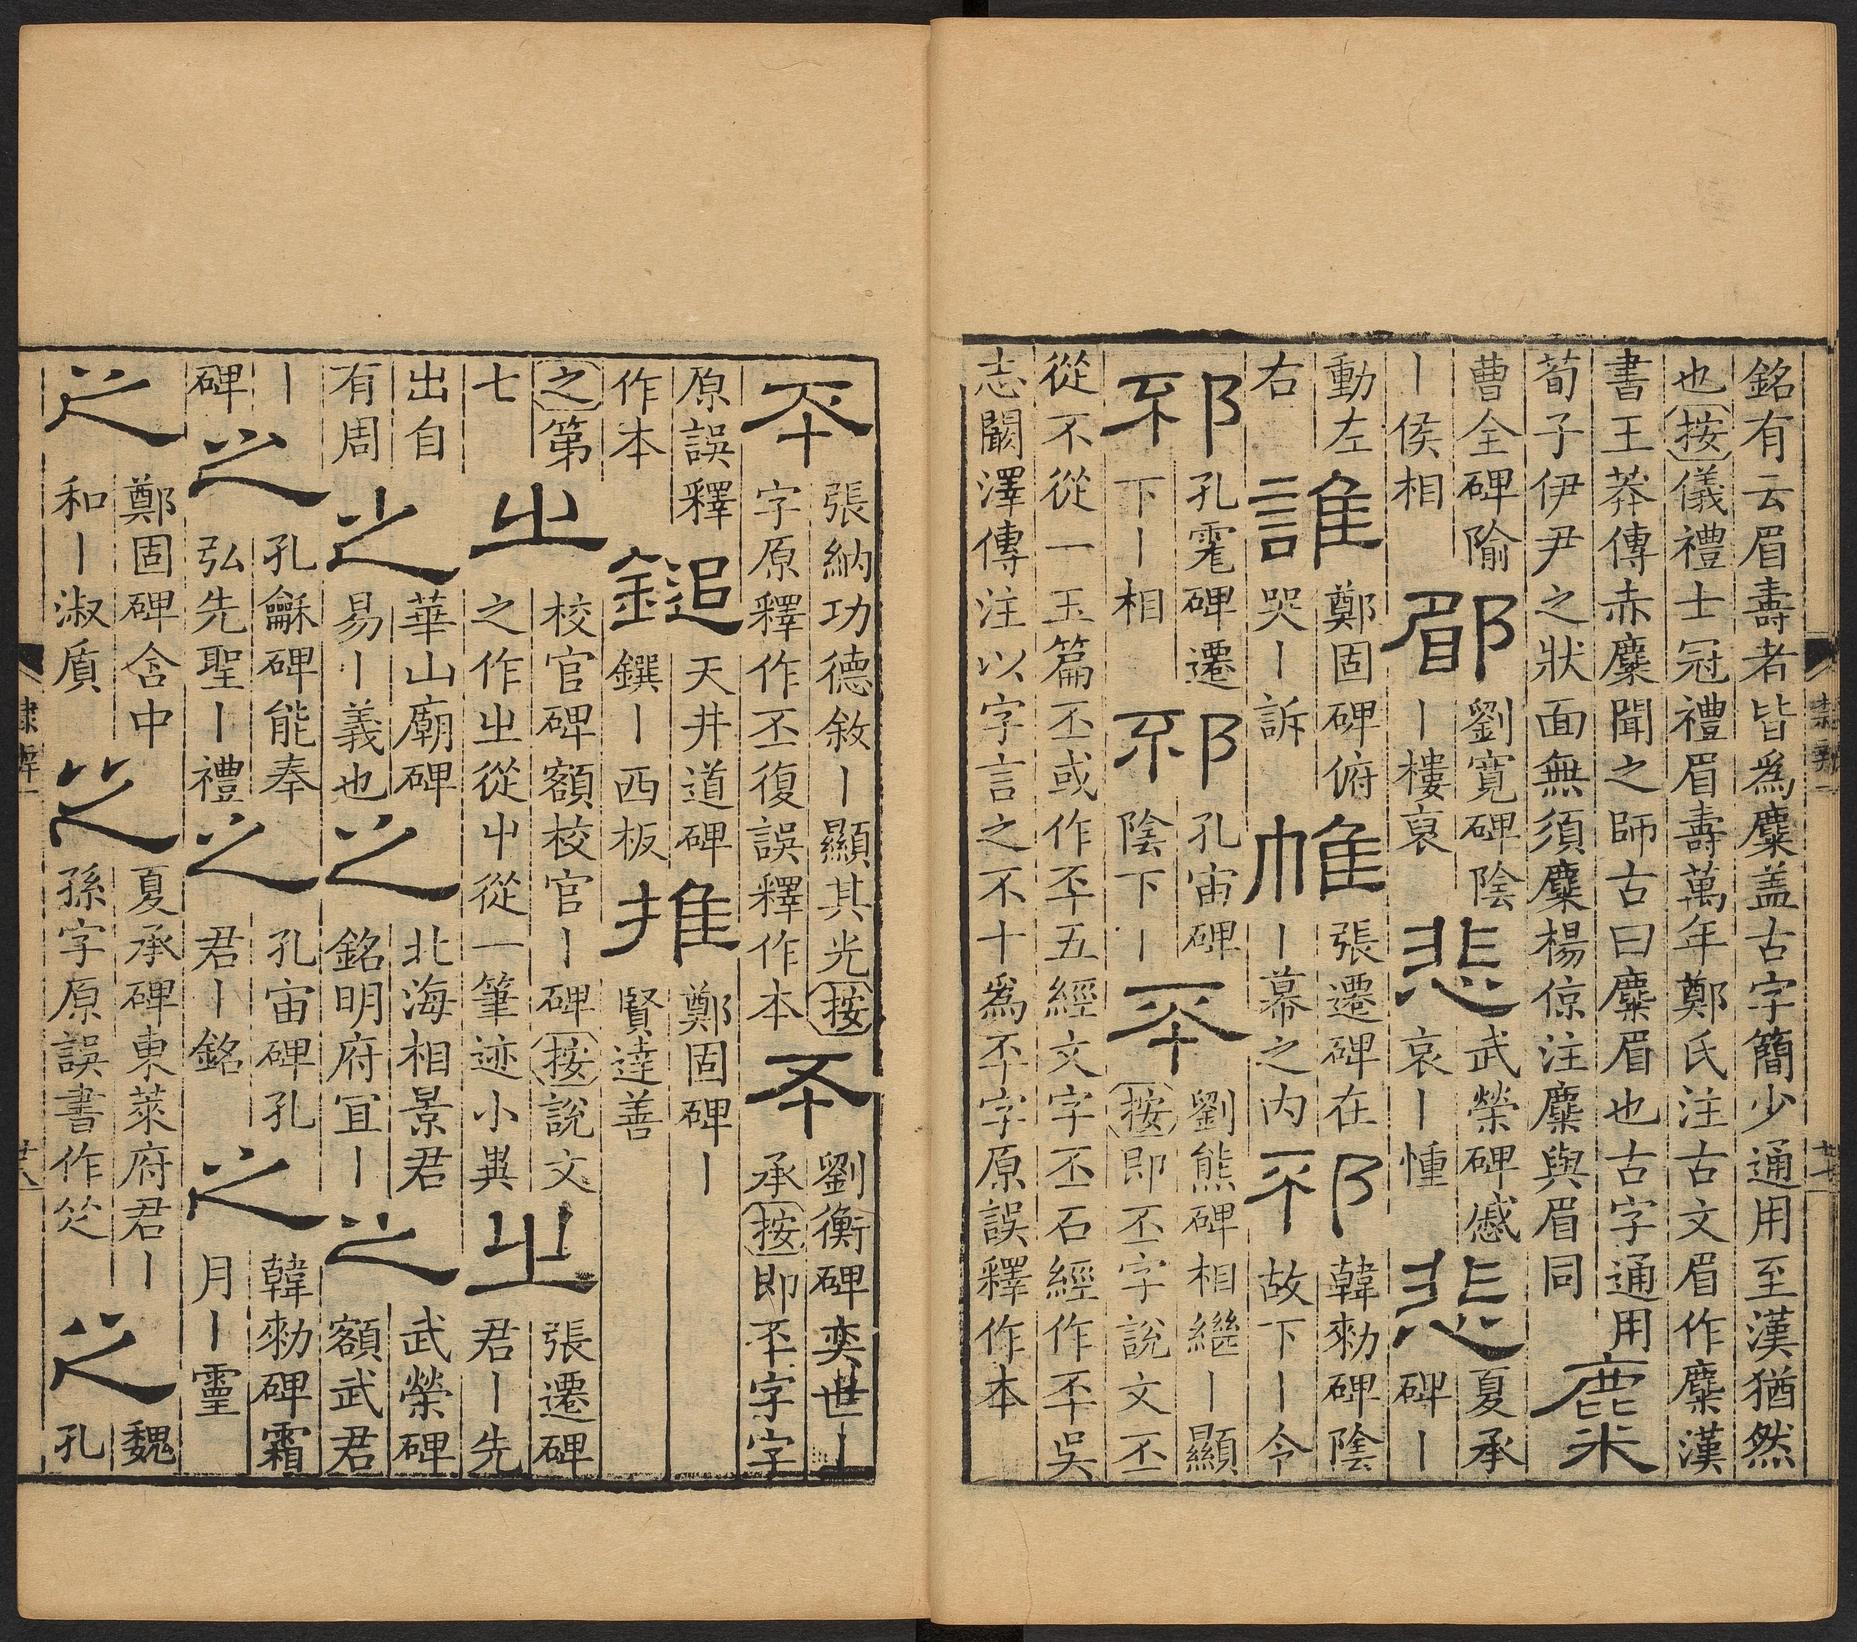 銘有云眉壽者皆爲麋盖古字簡少通用至漢猶然
也按儀禮士冠禮眉壽萬年鄭氏注古文眉作麋漢
書王莽傳赤麋聞之師古曰麋眉也古字通用
荀子伊尹之狀面無須麋楊倞注麋與眉同
麋
曹全碑隃
丨侯相
郿
劉寬碑陰
丨樓裒
悲
武榮碑慼
哀丨
悲
夏承
碑丨
動左
右
誰
鄭固碑俯
哭丨訴
帷
張遷碑在
丨幕之内
邳
韓勑碑陰
故下丨令
邳
孔碑遷
下丨相
邳
孔宙碑
陰下丨
丕
劉熊碑相繼丨顯
按即丕字說文丕
從不從一玉篇丕或作㔻五經文字丕石經作㔻吳
志闞澤傳注以字言之不十爲㔻字原誤釋作本
㔻
張納功德敘丨顯其光按
字原釋作丕復誤釋作本
㔻
劉衡碑奕世丨
承按即㔻字字
原誤釋
作本
鎚
天井道碑
鐉丨西板
推
鄭固碑丨
賢逹善
之第
七
㞢
校官碑額校官丨碑按說文
之作㞢從屮從一筆迹小異
㞢
張遷碑
君丨先
出自
有周
之
華山廟碑
易丨義也
之
北海相景君
銘明府冝丨
之
武榮碑
額武君
丨
碑
之
孔龢碑能奉
弘先聖丨禮
之
孔宙碑孔
君丨銘
之
韓勑碑霜
月丨靈
之
鄭固碑含中
和丨淑質
之
夏承碑東萊府君丨
孫字原誤書作
之
魏
孔
隸辨一
廿八